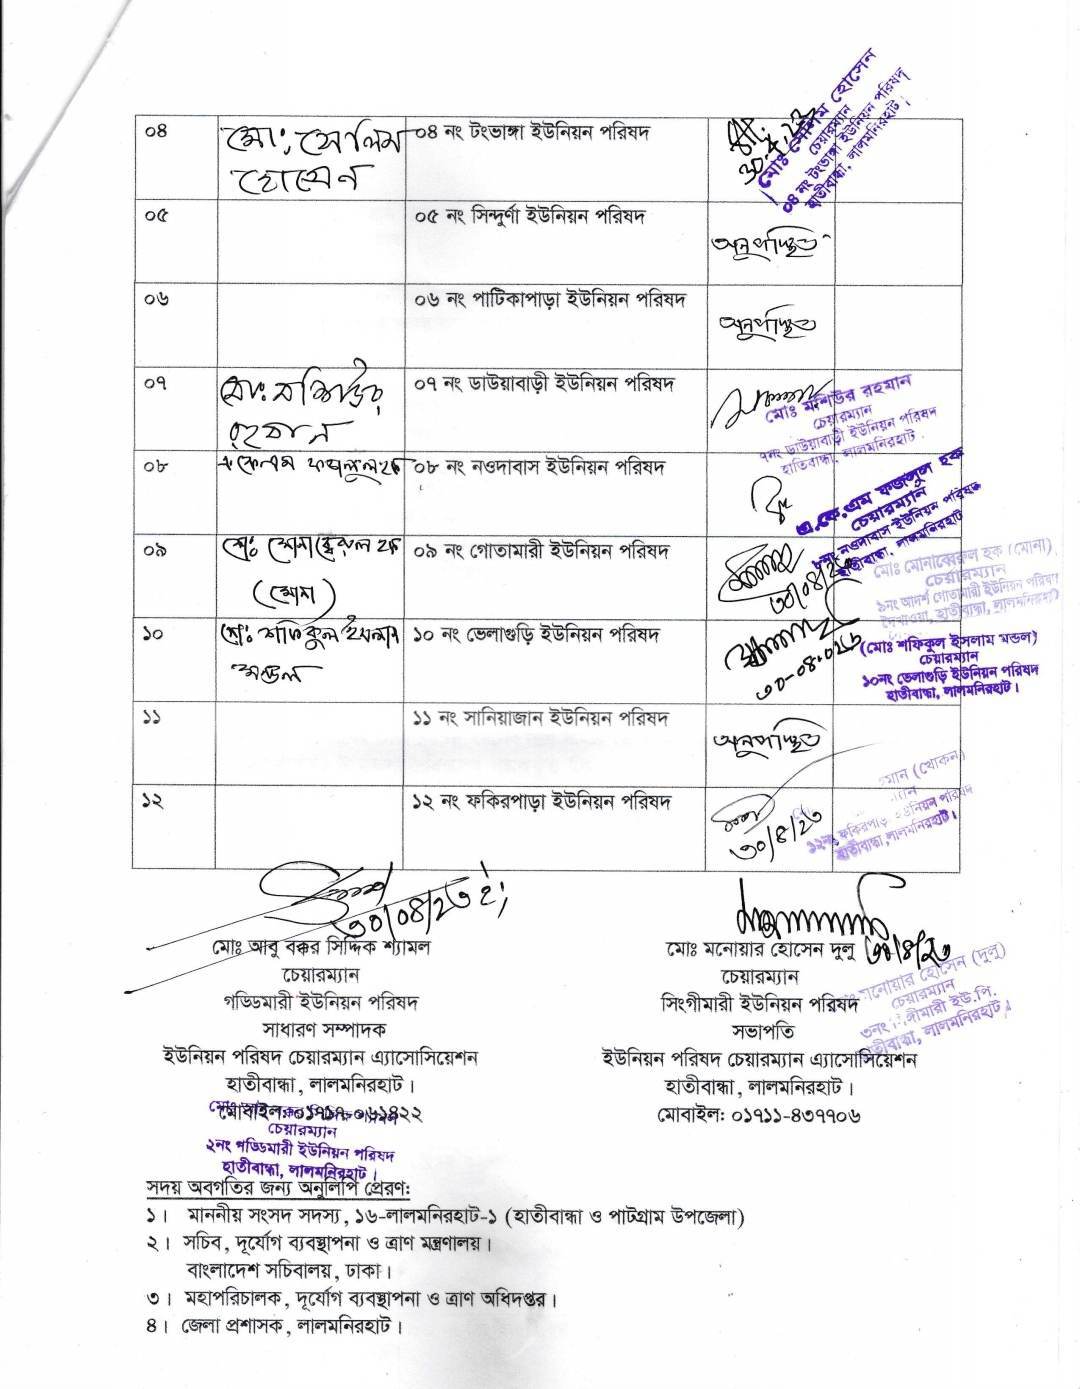 ০৪ মো: সেলিম হোসেন ০৪ নং টংভাঙ্গা ইউনিয়ন পরিষদ
মোঃ সেলিম হোসেন
চেয়ারম্যান
০৪ নং টংভাঙ্গা ইউনিয়ন পরিষদ
হাতীবান্ধা, লালমনিরহাট।
০৫ ০৫ নং সিন্দুর্ণা ইউনিয়ন পরিষদ অনুপস্থিত
০৬ ০৬ নং পাটিকাপাড়া ইউনিয়ন পরিষদ অনুপস্থিত
০৭ মো: মশিউর রহমান ০৭ নং ডাউয়াবাড়ী ইউনিয়ন পরিষদ
মোঃ মশিউর রহমান
চেয়ারম্যান
৭নং ডাউয়াবাড়ী ইউনিয়ন পরিষদ
হাতিবান্ধা, লালমনিরহাট।
০৮ এ কে এম ফজলুল হক ০৮ নং নওদাবাস ইউনিয়ন পরিষদ
এ.কে.এম ফজলুল হক
চেয়ারম্যান
৮নং নওদাবাস ইউনিয়ন পরিষদ
হাতীবান্ধা, লালমনিরহাট
০৯ মো: মোনাব্বেরুল হক ০৯ নং গোতামারী ইউনিয়ন পরিষদ
(মোনা) ৩০/০৪/২৩
মোঃ মোনাব্বেরুল হক (মোনা)
চেয়ারম্যান
৯নং আদর্শ গোতামারী ইউনিয়ন পরিষদ
দৈখাওয়া, হাতীবান্ধা, লালমনিরহাট
১০ মো: শফিকুল ইসলাম মন্ডল ১০ নং ভেলাগুড়ি ইউনিয়ন পরিষদ
(মোঃ শফিকুল ইসলাম মন্ডল)
চেয়ারম্যান
১০নং ভেলাগুড়ি ইউনিয়ন পরিষদ
হাতীবান্ধা, লালমনিরহাট।
১১ ১১ নং সানিয়াজান ইউনিয়ন পরিষদ অনুপস্থিত
১২ ১২ নং ফকিরপাড়া ইউনিয়ন পরিষদ ৩০/৪/২৩
(খোকন)
১২নং ফকিরপাড়া ইউনিয়ন পরিষদ
হাতীবান্ধা, লালমনিরহাট।
৩০/০৪/২৩ ইং
মোঃ আবু বক্কর সিদ্দিক শ্যামল
চেয়ারম্যান
গড্ডিমারী ইউনিয়ন পরিষদ
সাধারণ সম্পাদক
ইউনিয়ন পরিষদ চেয়ারম্যান এ্যাসোসিয়েশন
হাতীবান্ধা, লালমনিরহাট।
মোবাইল: ০১৭১৭-০৬১৪২২
চেয়ারম্যান
২নং গড্ডিমারী ইউনিয়ন পরিষদ
হাতীবান্ধা, লালমনিরহাট।
মোঃ মনোয়ার হোসেন দুলু ৩০/৪/২৩
চেয়ারম্যান
সিংগীমারী ইউনিয়ন পরিষদ
সভাপতি
ইউনিয়ন পরিষদ চেয়ারম্যান এ্যাসোসিয়েশন
হাতীবান্ধা, লালমনিরহাট।
মোবাইল: ০১৭১১-৪৩৭৭০৬
মনোয়ার হোসেন (দুলু)
চেয়ারম্যান
৩নং সিংগীমারী ইউ.পি.
হাতীবান্ধা, লালমনিরহাট।
সদয় অবগতির জন্য অনুলিপি প্রেরণ:
১। মাননীয় সংসদ সদস্য, ১৬-লালমনিরহাট-১ (হাতীবান্ধা ও পাটগ্রাম উপজেলা)
২। সচিব, দূর্যোগ ব্যবস্থাপনা ও ত্রাণ মন্ত্রণালয়।
বাংলাদেশ সচিবালয়, ঢাকা।
৩। মহাপরিচালক, দূর্যোগ ব্যবস্থাপনা ও ত্রাণ অধিদপ্তর।
৪। জেলা প্রশাসক, লালমনিরহাট।